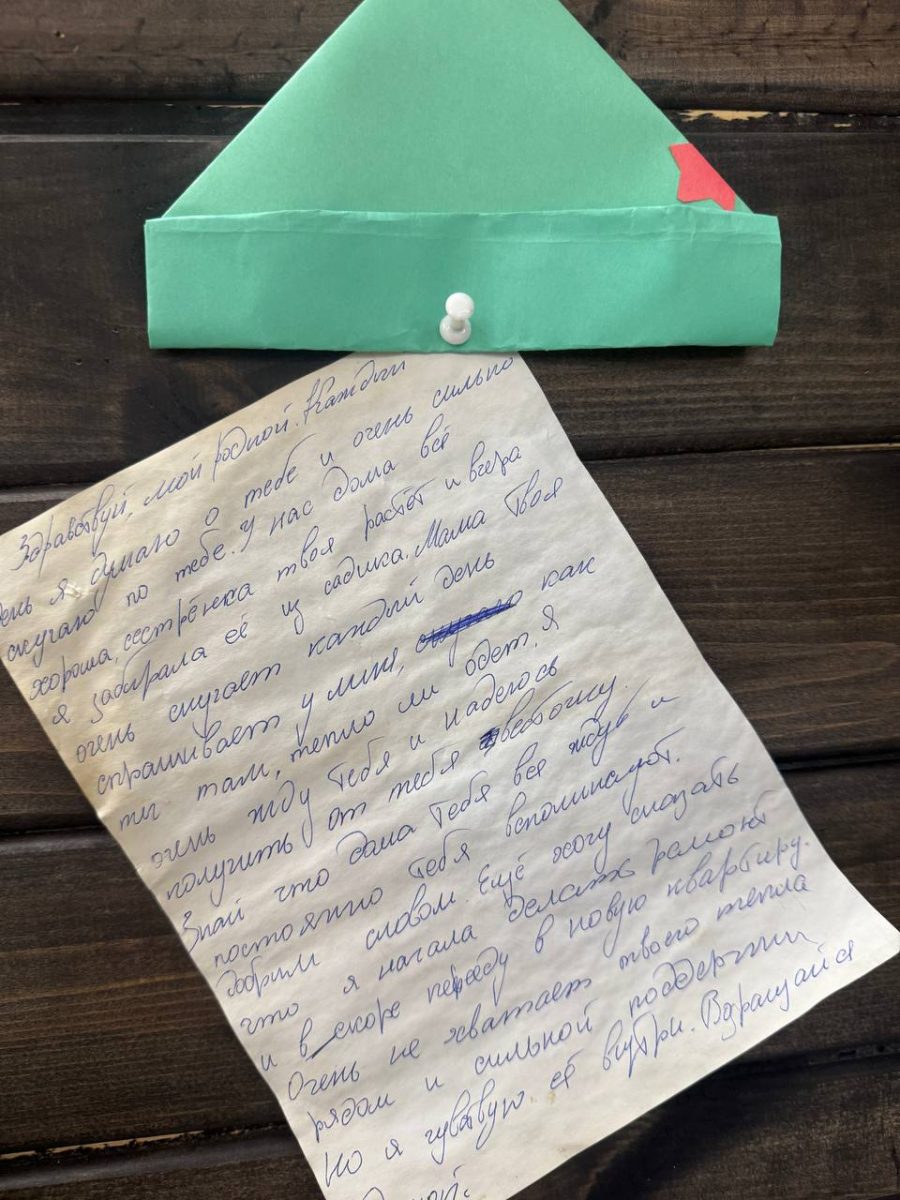 Здравствуй, мой родной. Каждый
день я думаю о тебе и очень сильно
скучаю по тебе. У нас дома всё
хорошо, сестрёнка твоя растёт и вчера
я забирала её из садика. Мама твоя
очень скучает каждый день
спрашивает у меня, как
ты там, тепло ли одет. Я
очень жду тебя и надеюсь
получить от тебя весточку.
Знай что дома тебя все ждут и
постоянно тебя вспоминают.
добрым словом. Ещё хочу сказать
что я начала делать ремонт
и в скоре перееду в новую квартиру.
Очень не хватает твоего тепла
рядом и сильной поддержки
Но я чувствую её внутри. Возращайся